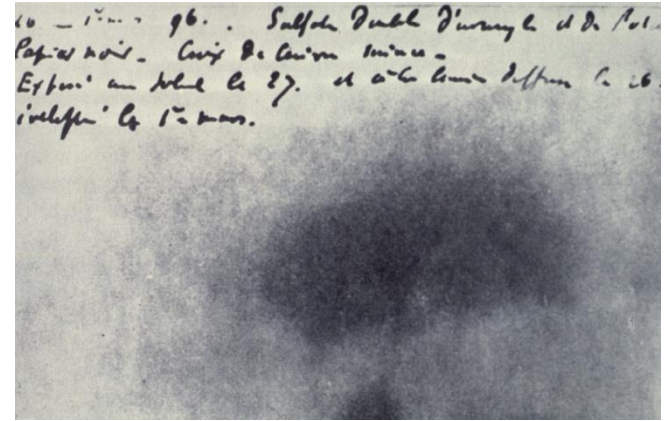 96. Sulfate Double D'uranyle et de Pot
Papier noir. Croix de Cuivre mince.
Exposé au soleil le 27. et à la lumière diffuse le 26.
veloppé le 1er mars.